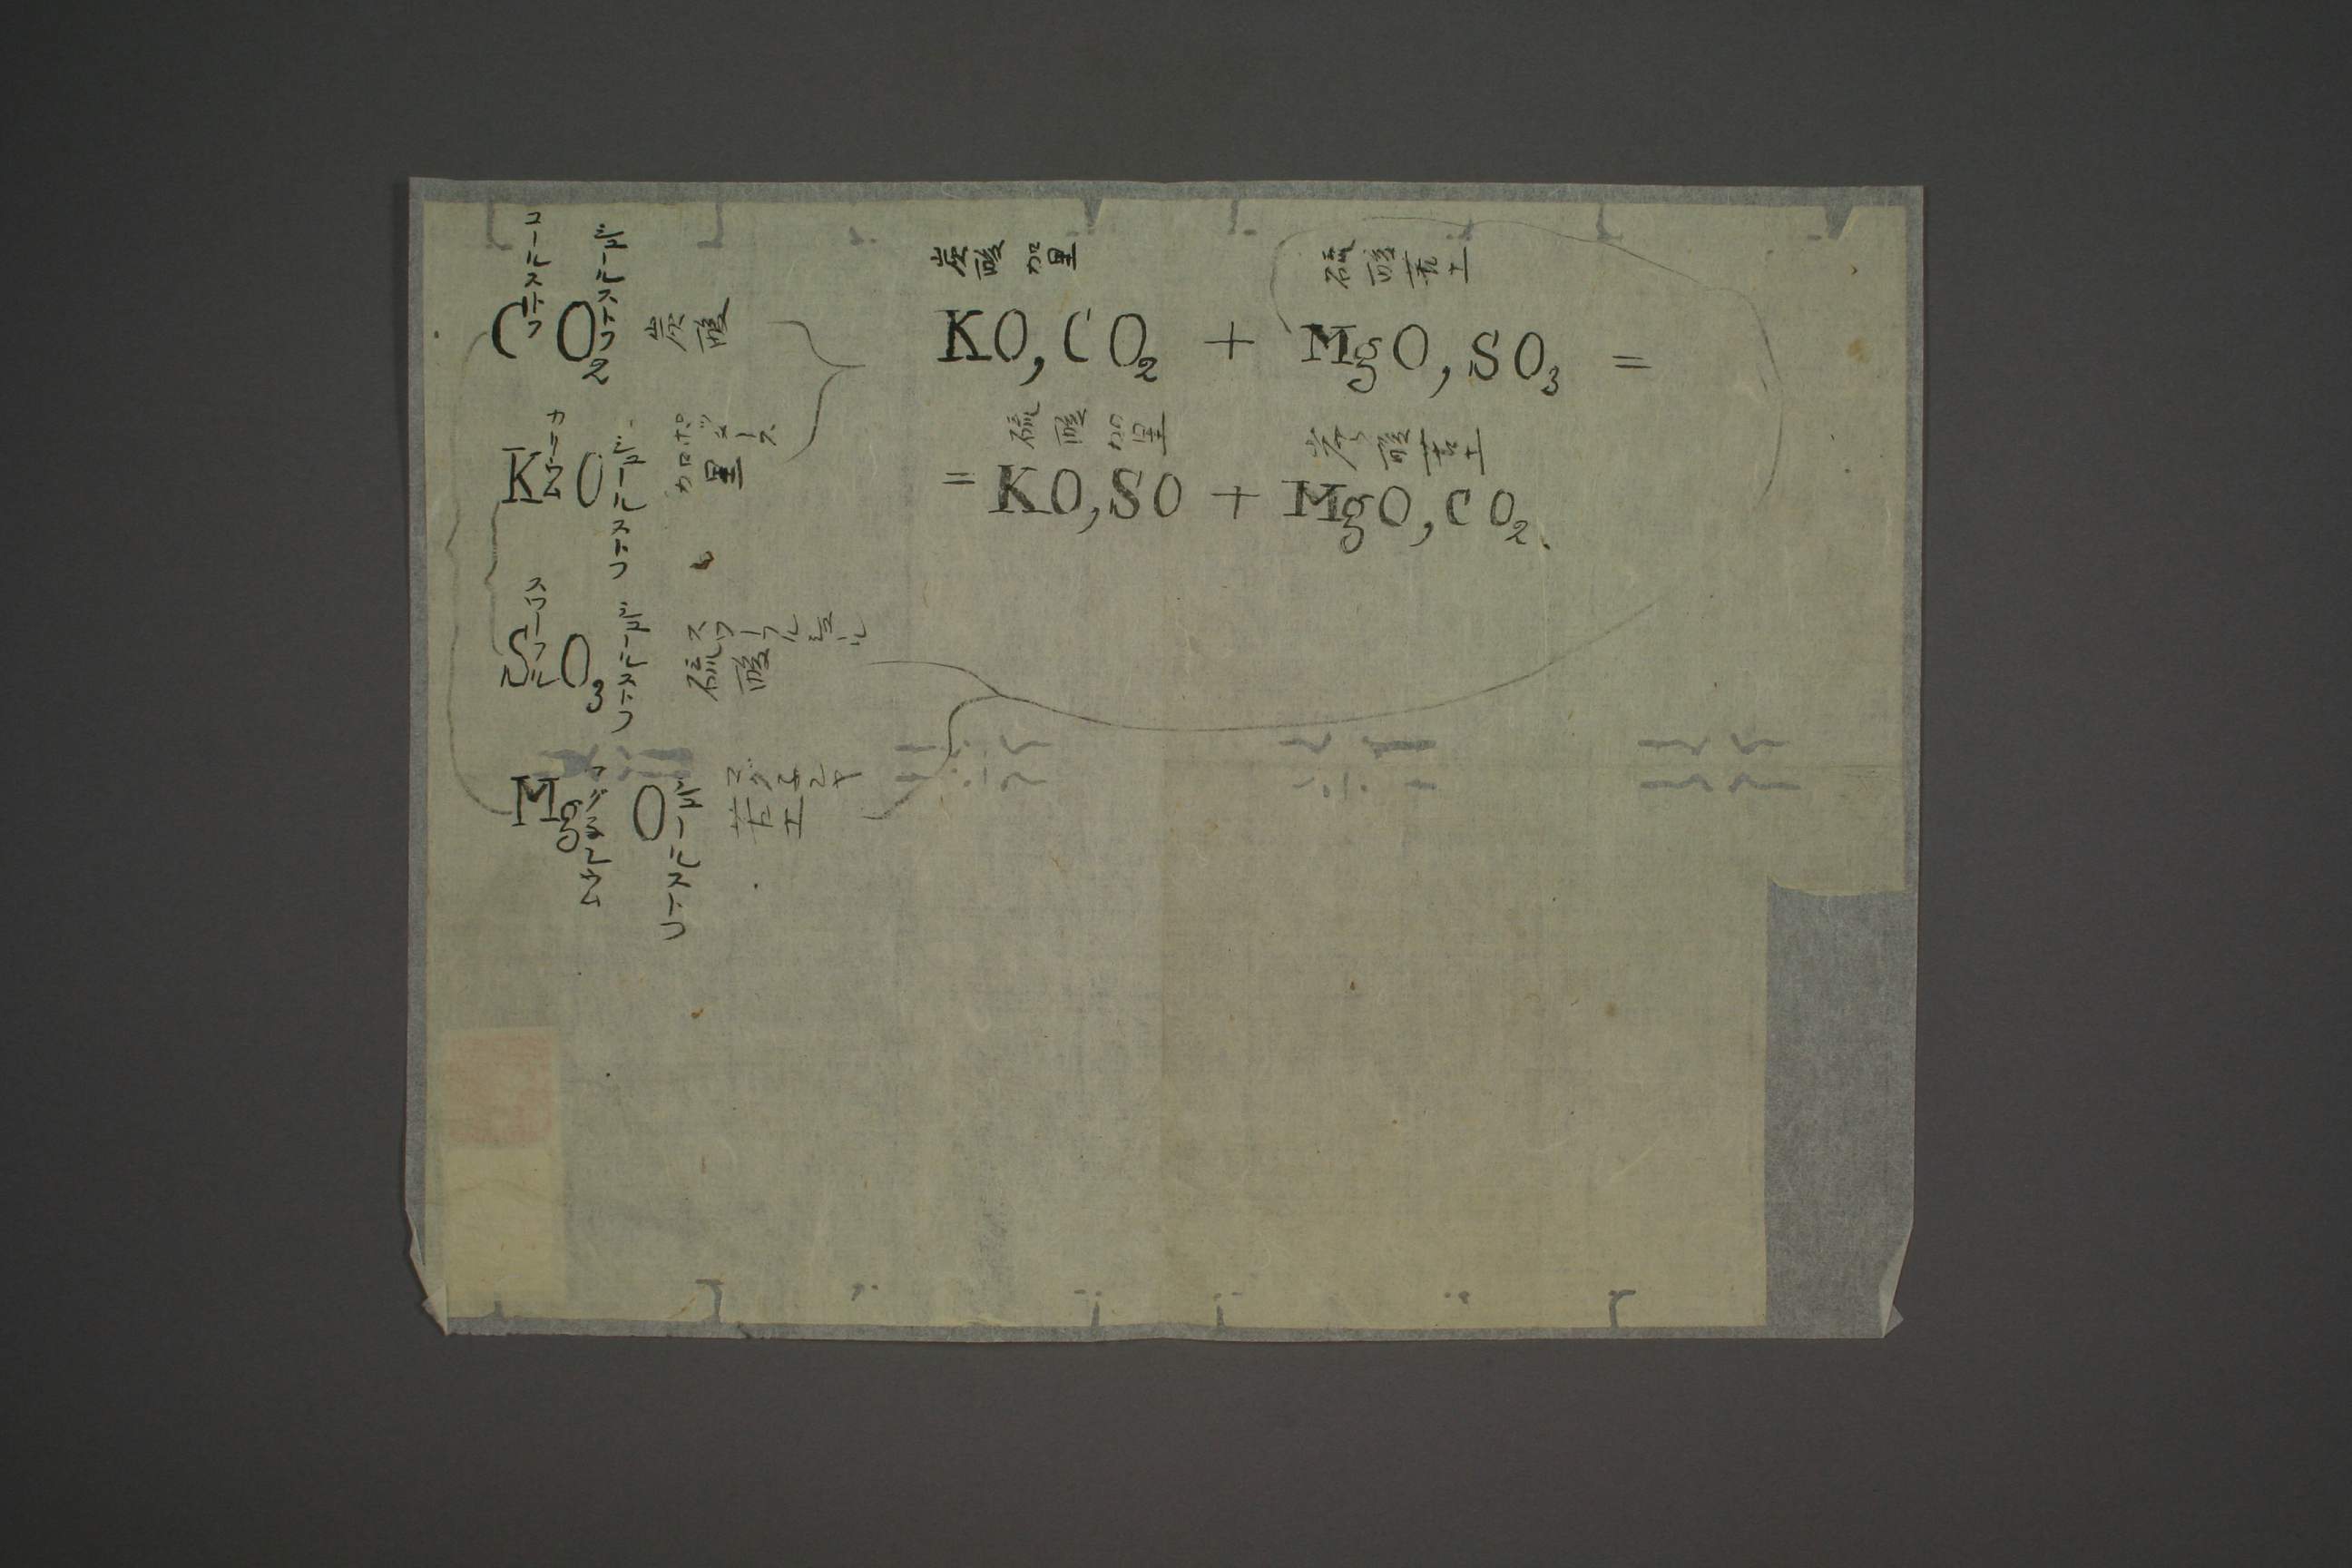 コールストフ
ジュールストフ
CO₂ 炭酸
カーリ
ジュールストフ
ポツタース
K O 加里
スワーフル
ジュールストフ
スワーフルジュール
SO₃ 硫酸
マグネシウム
ジュールストフ
マグネシヤ
Mg O 苦土
炭酸加里 硫酸苦土
KO,CO₂ + MgO,SO₃ =
硫酸加里 炭酸苦土
= KO,SO + MgO,CO₂.